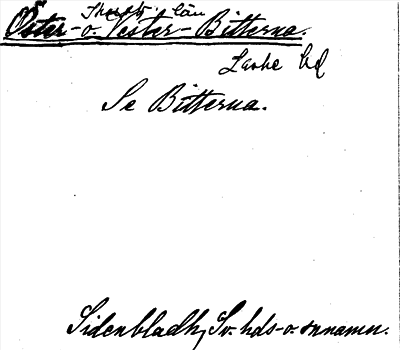 Skarab. län
Öster- o. Vester- Bitterna.
Laske hd
Se Bitterna.
Sidenbladh, Sv. hds- o. snnamn.